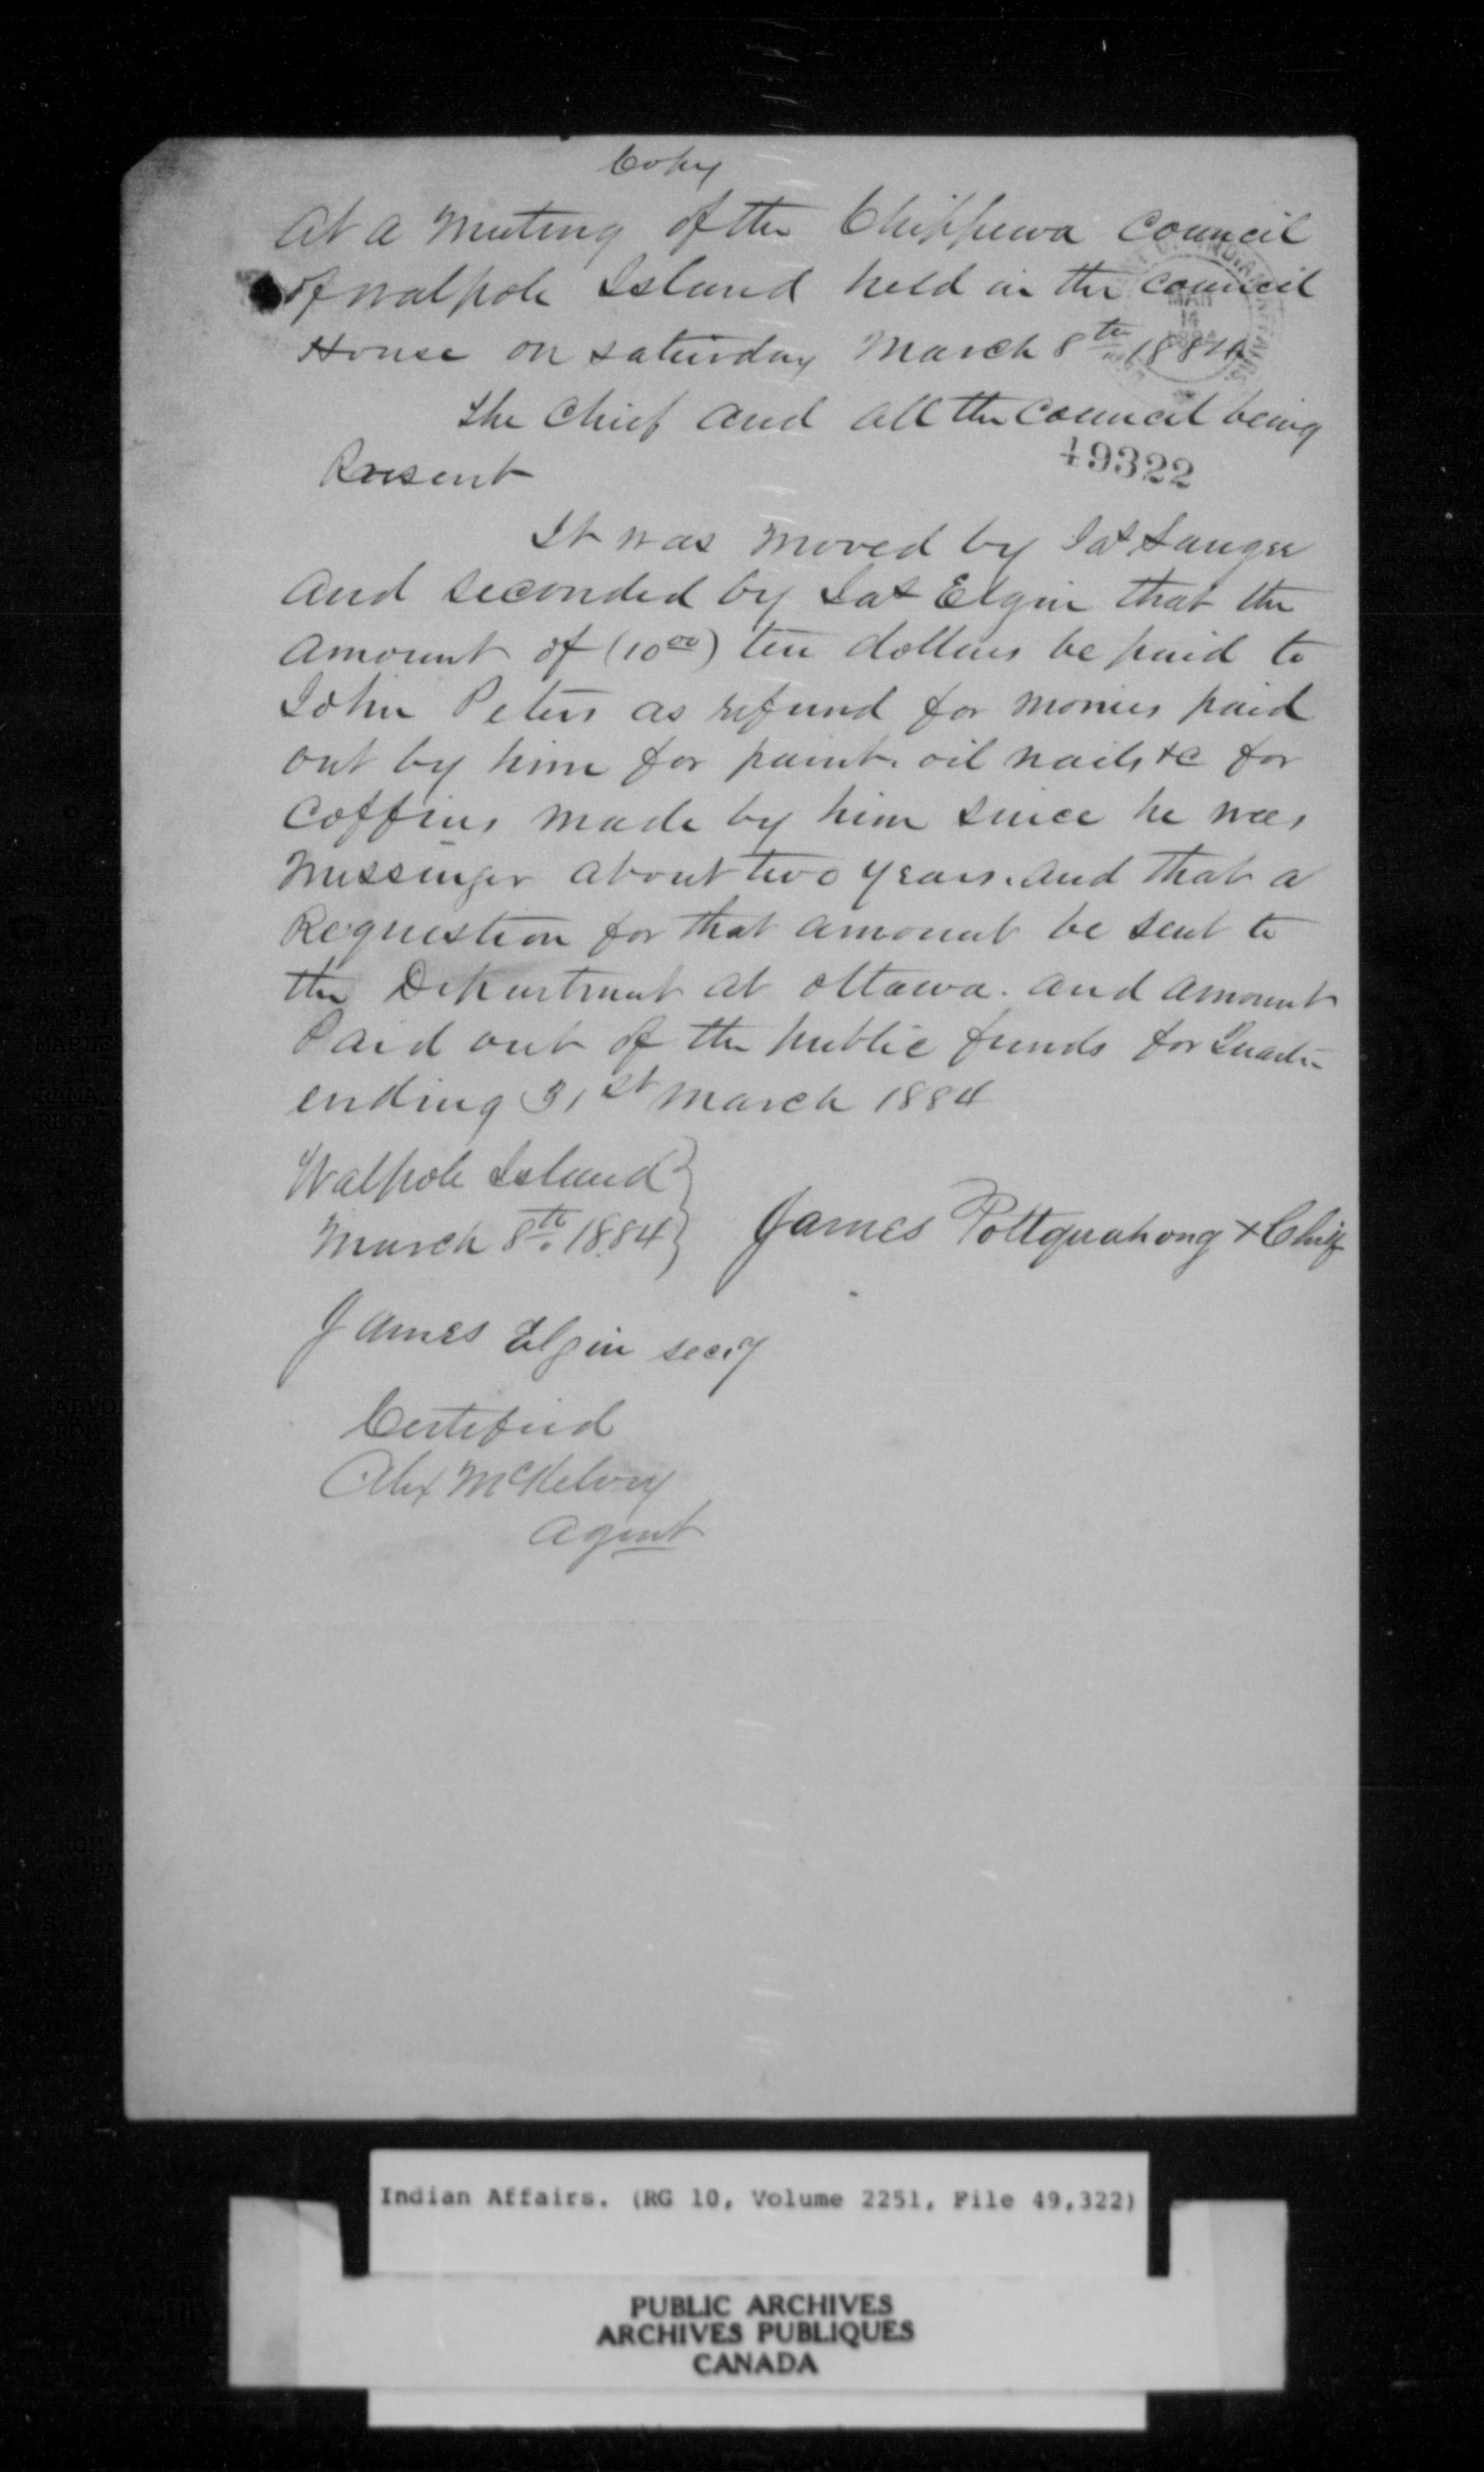 Copy
At a meeting of the Chippewa Council
of walpole Island held in the council
House on saturday March 8th 1884
The Chief and all the Council being
49322
Present
It was moved by Jas Sanger
and seconded by Jas Elgin that the
amount of (10 00) ten dollars be paid to
John Peters as refund for monies paid
out by him for paint. oil nails &c for
Coffins made by him since he was
Messenger about two years. and that a
Requestion for that amount be sent to
the Department at ottawa. and amount
Paid out of the public funds for Quarter
ending 31st March 1884
Walpole Island
March 8th 1884
James Pottquahong + Chief
James Elgin secy
Certified
Alex McKelvey
agent
MAR
14
1884
INDIAN AFFAIRS.
Indian Affairs. (RG 10, Volume 2251, File 49,322)
PUBLIC ARCHIVES
ARCHIVES PUBLIQUES
CANADA